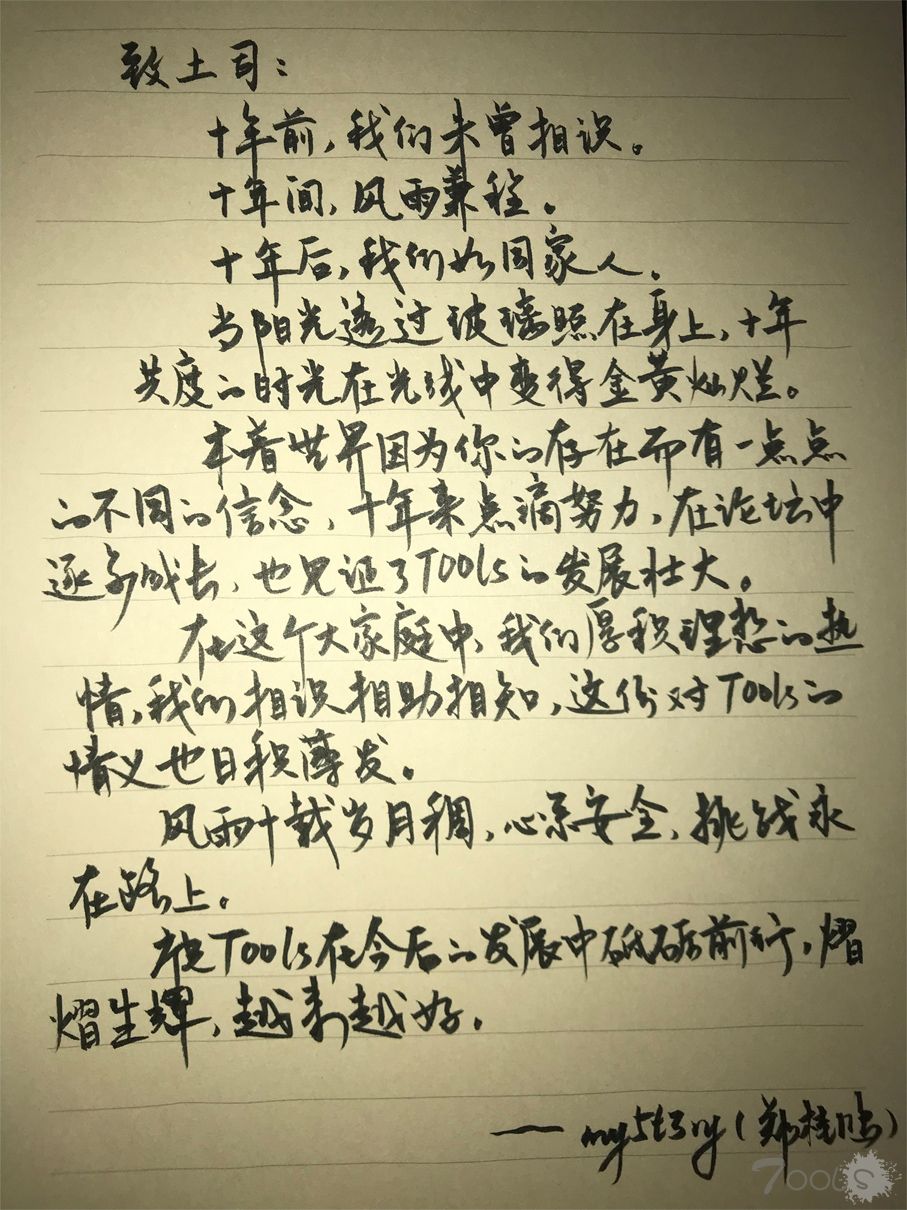 致土司：
十年前，我们未曾相识。
十年间，风雨兼程。
十年后，我们如同家人。
当阳光透过玻璃照在身上，十年
共度的时光在光线中变得金黄灿烂。
本着世界因为你的存在而有一点点
的不同的信念，十年来点滴努力，在论坛中
逐步成长，也见证了T00ls的发展壮大。
在这个大家庭中，我们厚积理想的热
情，我们相识相助相知，这份对T00ls的
情义也日积薄发。
风雨十载岁月稠，心系安全，挑战永
在路上。
祝T00ls在今后的发展中砥砺前行，熠
熠生輝，越来越好。
——myst3ry(郑桂
T00LS